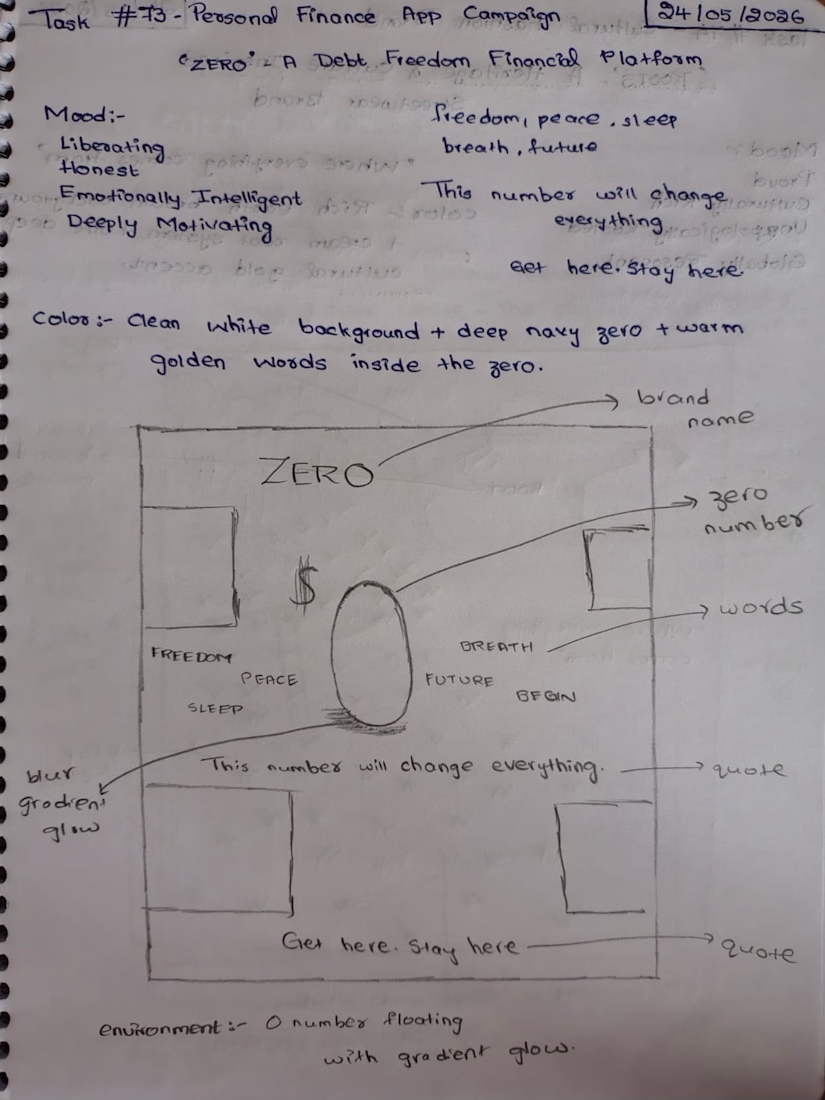 Task #73 - Personal Finance App Campaign
24/05/2026
"ZERO" - A Debt Freedom Financial Platform
Mood:-
Liberating
Honest
Emotionally Intelligent
Deeply Motivating
freedom, peace, sleep
breath, future
This number will change
everything
Get here. Stay here.
Color:- Clean white background + deep navy zero + warm
golden words inside the zero.
brand
name
ZERO
zero
number
$
words
FREEDOM
PEACE
SLEEP
BREATH
FUTURE
BEGIN
This number will change everything.
quote
blur
gradient
glow
Get here. Stay here
quote
environment:- 0 number floating
with gradient glow.